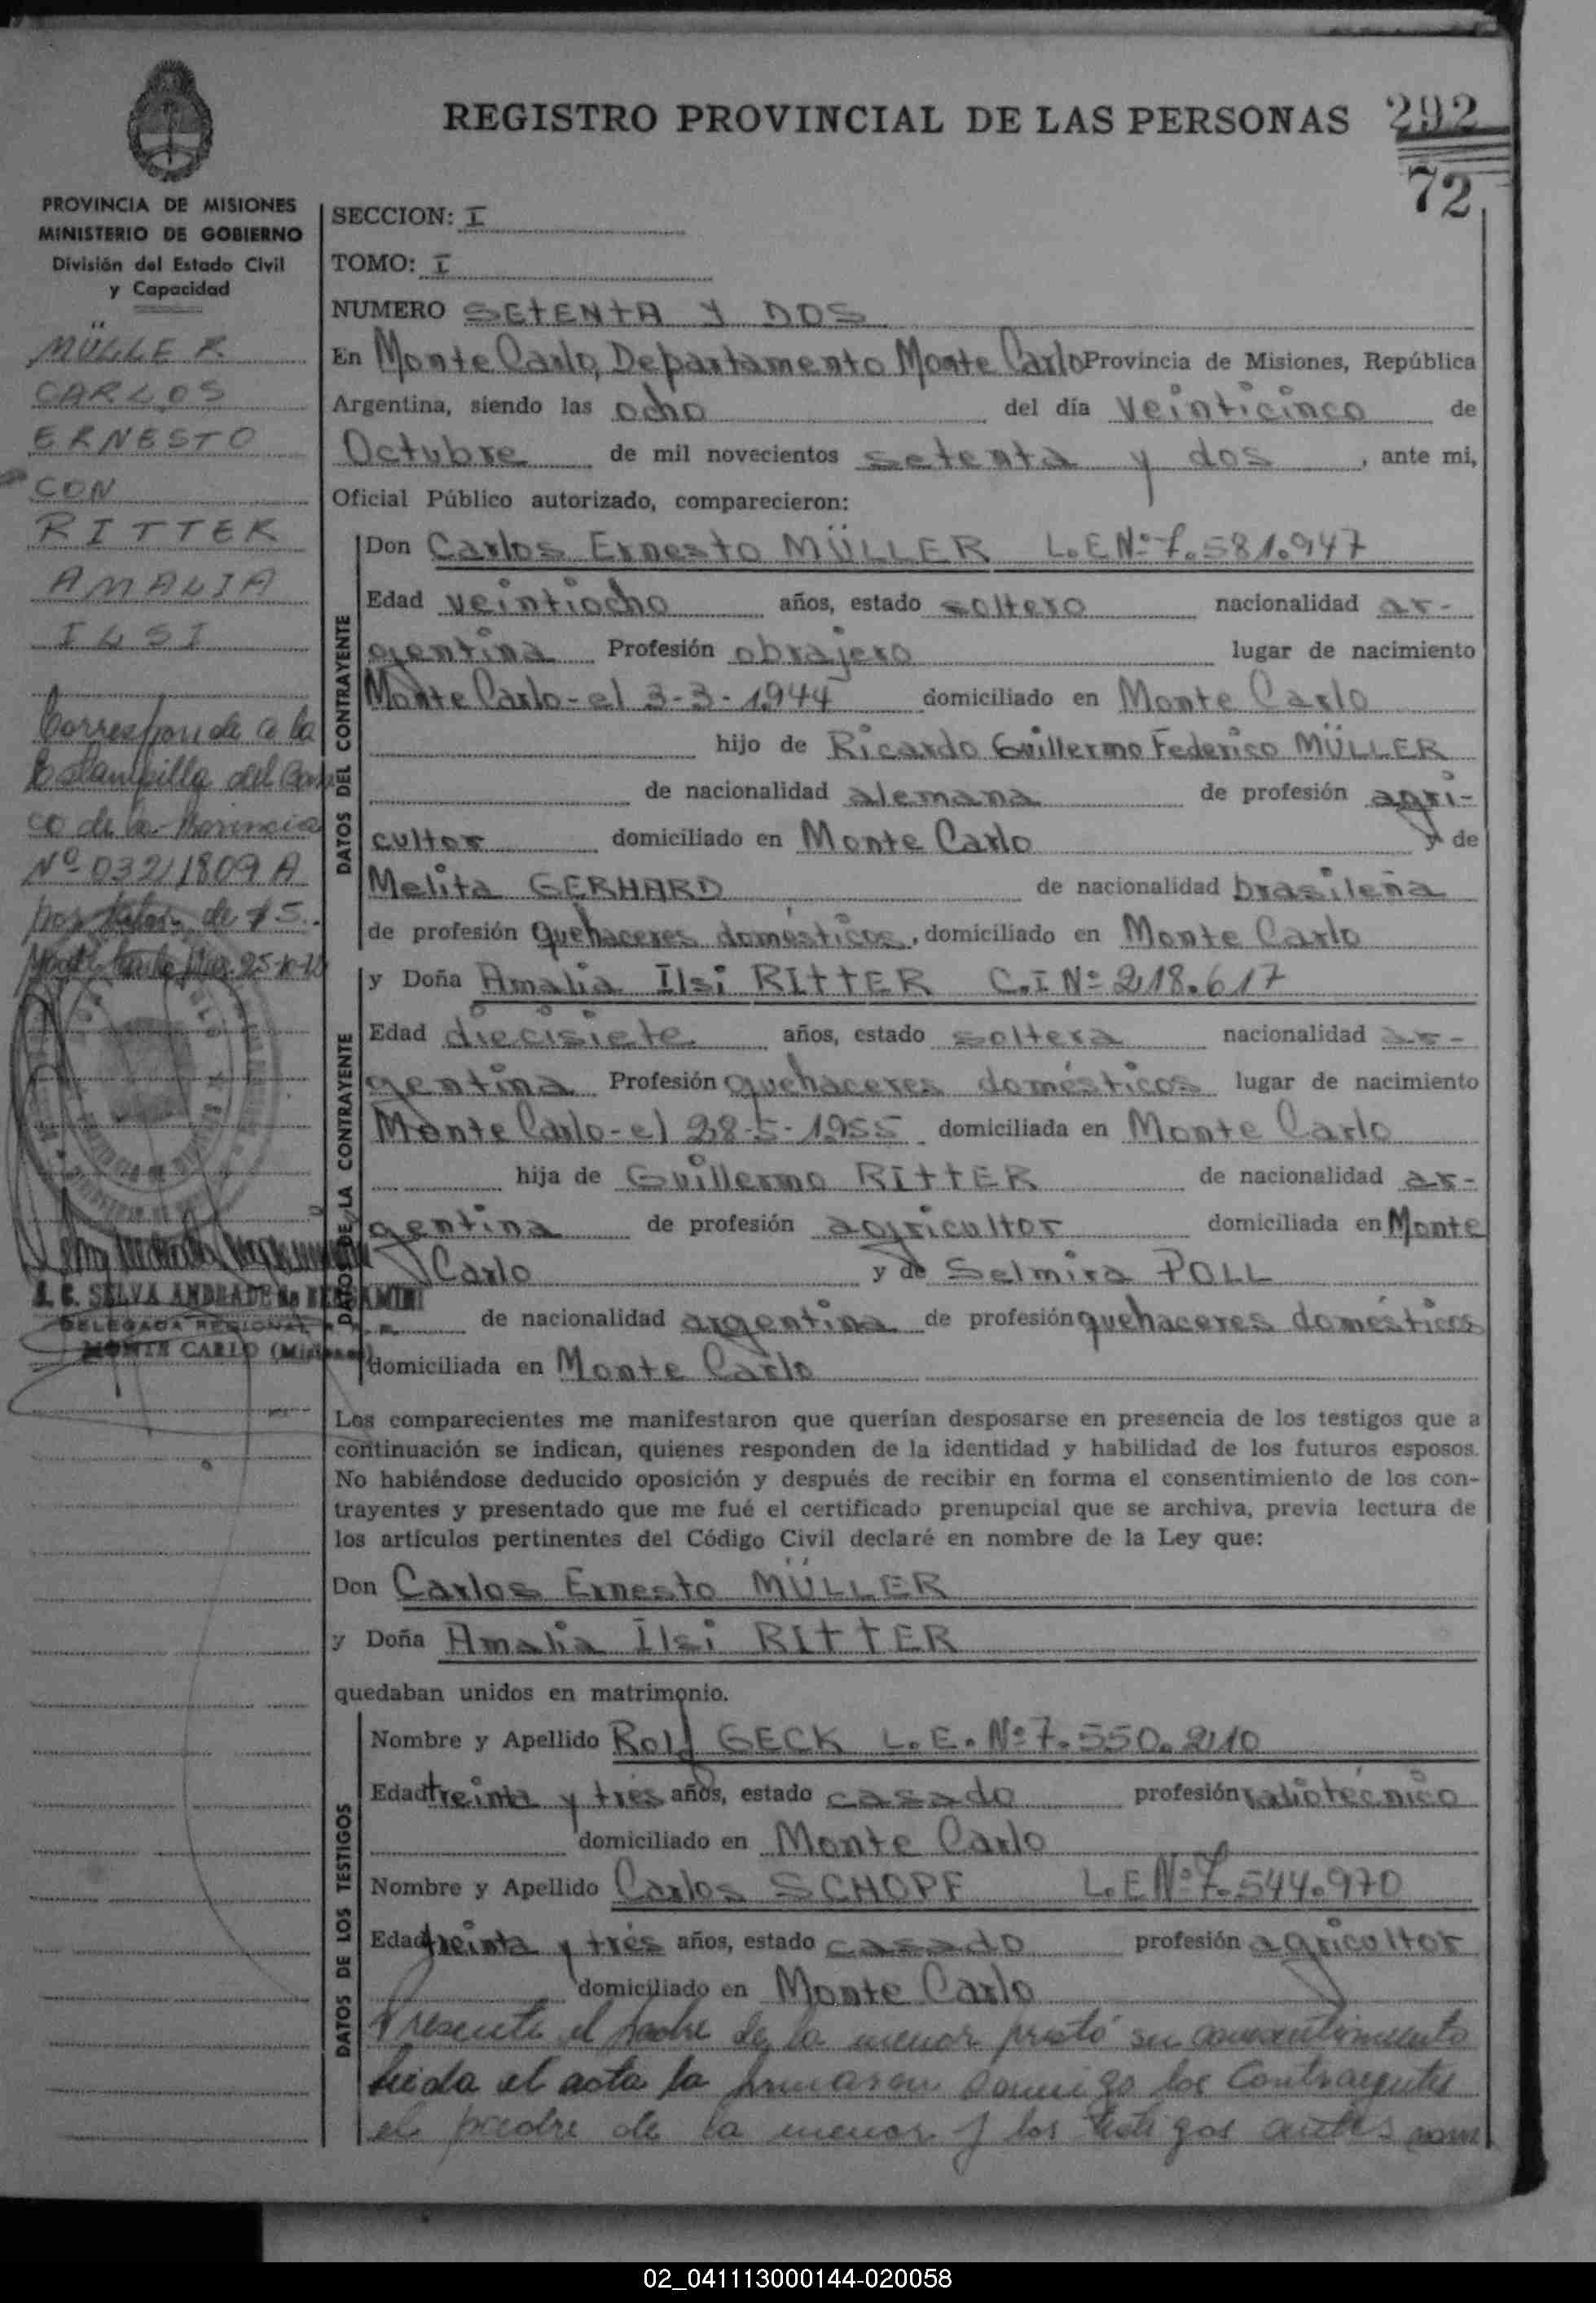 REGISTRO PROVINCIAL DE LAS PERSONAS
292
72
PROVINCIA DE MISIONES
MINISTERIO DE GOBIERNO
División del Estado Civil
y Capacidad
MÜLLER
CARLOS
ERNESTO
CON
RITTER
AMALIA
ILSI
Corresponde a la
Estampilla del Ban
co de la Provincia
Nº 0321809 A
por valor de $5.
S. C. SELVA ANDRADE de BENJAMINI
DELEGADA REGIONAL
MONTE CARLO (Misiones)
SECCION: I
TOMO: I
NUMERO SETENTA Y DOS
En Monte Carlo, Departamento Monte Carlo Provincia de Misiones, República
Argentina, siendo las ocho del día veinticinco de
Octubre de mil novecientos setenta y dos, ante mi,
Oficial Público autorizado, comparecieron:
DATOS DEL CONTRAYENTE
Don Carlos Ernesto MÜLLER L.E Nº 7.581.947
Edad veintiocho años, estado soltero nacionalidad ar-
gentina Profesión obrajero lugar de nacimiento
Monte Carlo - el 3-3-1944 domiciliado en Monte Carlo
hijo de Ricardo Guillermo Federico MÜLLER
de nacionalidad alemana de profesión agri-
cultor domiciliado en Monte Carlo y de
Melita GERHARD de nacionalidad brasileña
de profesión quehaceres domésticos, domiciliado en Monte Carlo
DATOS DE LA CONTRAYENTE
y Doña Amalia Ilsi RITTER C.I Nº 218.617
Edad diecisiete años, estado soltera nacionalidad ar-
gentina Profesión quehaceres domésticos lugar de nacimiento
Monte Carlo - el 28-5-1955 domiciliada en Monte Carlo
hija de Guillermo RITTER de nacionalidad ar-
gentina de profesión agricultor domiciliada en Monte
Carlo y de Selmira POLL
de nacionalidad argentina de profesión quehaceres domésticos
domiciliada en Monte Carlo
Los comparecientes me manifestaron que querían desposarse en presencia de los testigos que a
continuación se indican, quienes responden de la identidad y habilidad de los futuros esposos.
No habiéndose deducido oposición y después de recibir en forma el consentimiento de los con-
trayentes y presentado que me fué el certificado prenupcial que se archiva, previa lectura de
los artículos pertinentes del Código Civil declaré en nombre de la Ley que:
Don Carlos Ernesto MÜLLER
y Doña Amalia Ilsi RITTER
quedaban unidos en matrimonio.
DATOS DE LOS TESTIGOS
Nombre y Apellido Rolf GECK L.E. Nº 7.550.210
Edad treinta y tres años, estado casado profesión radiotécnico
domiciliado en Monte Carlo
Nombre y Apellido Carlos SCHOPF L.E Nº 7.544.970
Edad treinta y tres años, estado casado profesión agricultor
domiciliado en Monte Carlo
Presente el padre de la menor prestó su consentimiento
Leida el acta la firmaron conmigo los Contrayentes
el padre de la menor y los testigos antes nom
02_041113000144-020058